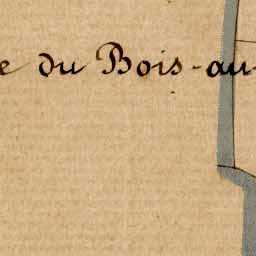 e du Bois-au-